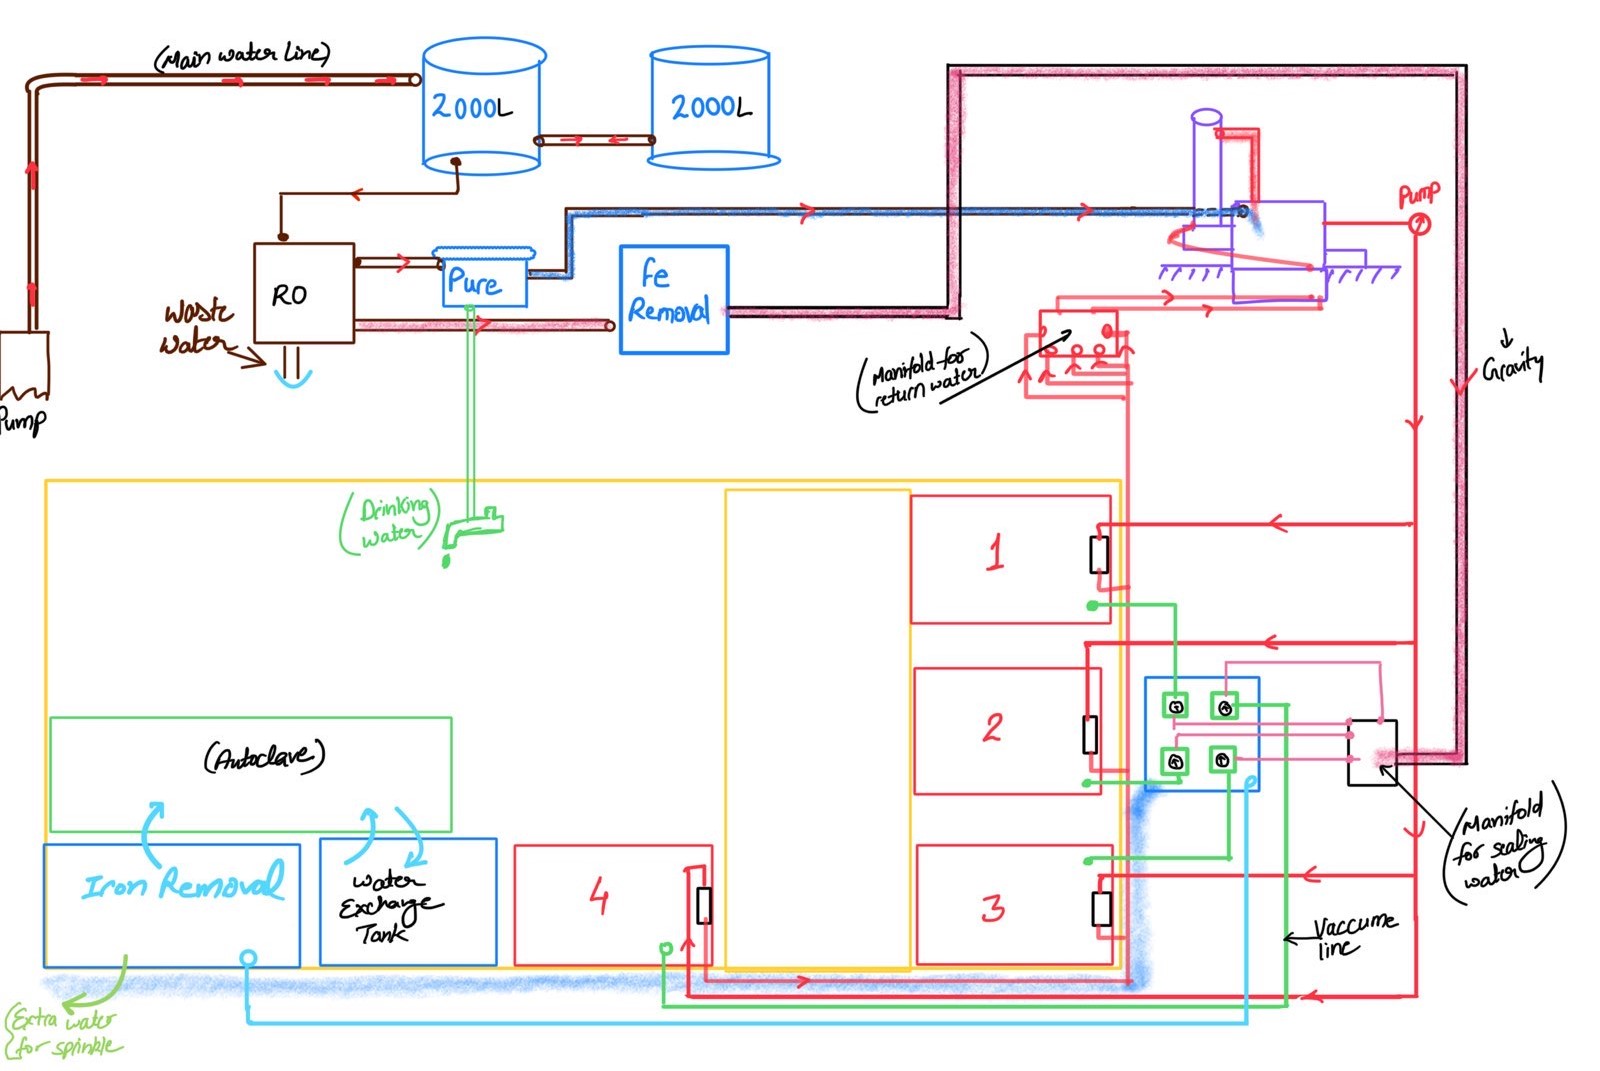 (Main water line)
2000L
2000L
Pump
RO
Pure
Fe
Removal
Waste
water
Pump
(Manifold for
return water)
↓
Gravity
(Drinking
water)
1
2
3
4
(Autoclave)
Iron Removal
Water
Exchange
Tank
(Manifold
for sealing
water)
Vaccume
line
(Extra water
for sprinkle